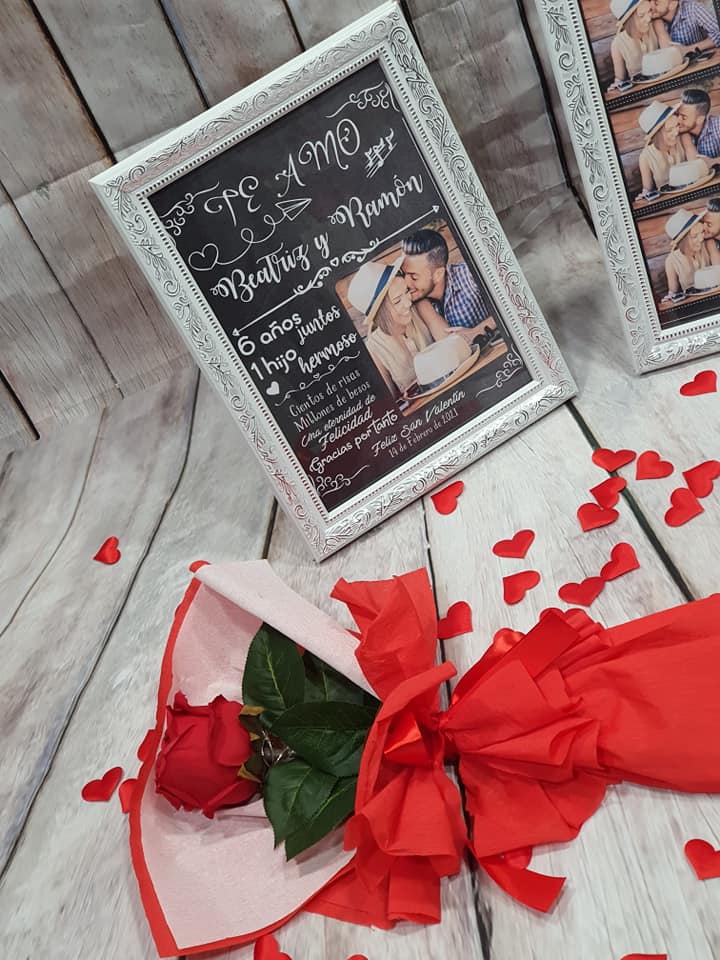 TE AMO
Beatriz y Ramón
6 años
juntos
1 hijo
hermoso
Cientos de risas
Millones de besos
Una eternidad de
Felicidad
Gracias por tanto
Feliz San Valentín
14 de Febrero de 2021